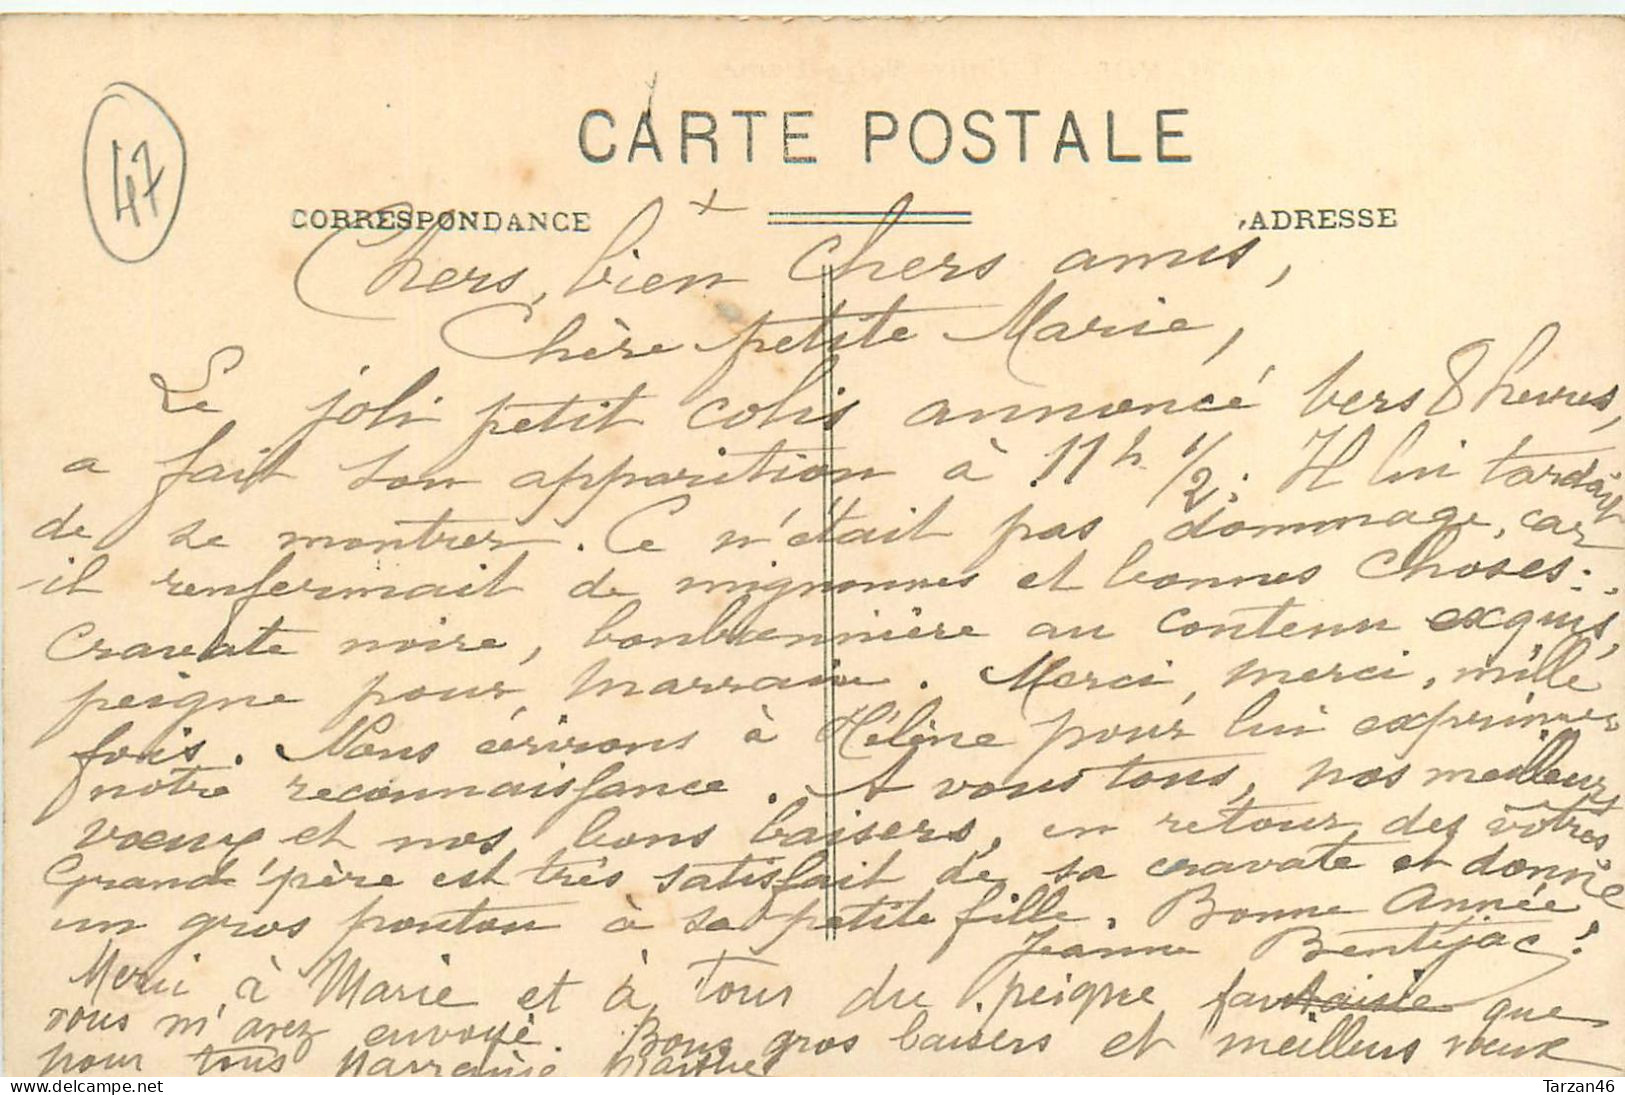 47
CARTE POSTALE
CORRESPONDANCE
ADRESSE
Chers, bien chers amis,
Chère petite Marie,
Le joli petit colis annoncé vers 8 heures,
a fait son apparition à 11h 1/2. Il lui tardait
de se montrer. Ce n'était pas dommage, car
il renfermait de mignonnes et bonnes choses :
cravate noire, bonbonnière au contenu exquis,
peigne pour marraine. Merci, merci, mille
fois. Nous écrirons à Hélène pour lui exprimer
notre reconnaissance. A vous tous, nos meilleurs
voeux et nos bons baisers, en retour des vôtres
Grand'père est très satisfait de sa cravate et donne
un gros poutou à sa petite fille. Bonne Année !
Jeanne Bentéjac
Merci à Marie et à tous du peigne fantaisie que
vous m'avez envoyé. Bons gros baisers et meilleurs voeux
pour tous Marraine Marthe
delcampe.net
Tarzan46